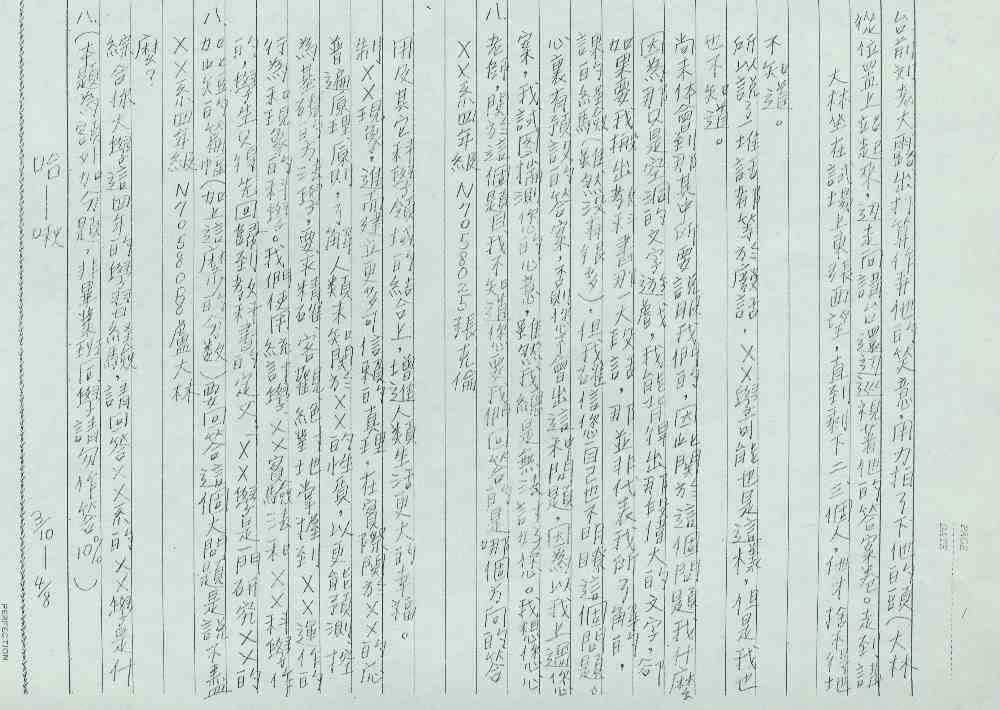 PAGE 1
DATE
哈——啾 3/10—4/8
八.(本題為額外加分題,非畢業班同學請勿作答 10%)
綜合你大學這四年的學習經驗,請回答XX系的XX學是什
麼?
XX系四年級 N705808 盧大林
八. 如此短的篇幅(加上這麼少的分數)要回答這個大問題是說不盡
的,學生又得先回歸到教科書的定義「XX學是一門研究XX的
行為和現象的科學。我們使用統計學、XX實驗法和XX科學作
為基礎的方法學,要求精確、客觀絕對地掌握到XX運作的
普遍原理原則,了解人類未知關於XX的性質,以更能預測、控
制XX現象,進而建立更多可信賴的真理,在實際關於XX的應
用及其它科學領域的結合上,增進人類生活更大的幸福。
XX系四年級 N7058025 張志倫
八. 老師,關於這個題目我不知道您要我們回答的是哪個方向的答
案,我試圖揣測您的心意,雖然我總是無法了解您。我想您心
心裏有預設的答案,否則您不會出這末問題,因為以我上過您
課的經驗(雖然沒有很多),但我確信您自己也不明瞭這個問題。
如果要我搬出教科書那一大段話,那並非代表我所了解的,
因為那只是空洞的文字遊戲,我能背得出那段偉大的文字,
尚未体會到那其中所要說明我們的,因此關於這個問題我什麼
也不知道。
所以說了一堆話都等於廢話,XX學可能也是這樣,但是我也
不知道。
大林坐在試場上東張西望,直到剩下二三個人,他才捨不得地
從位置上站起來,邊走向講台還邊巡視著他的答案卷。走到講
台前對老大露出打算作弊他的笑意,用力拍了下他的頭(大林
PERFECTION